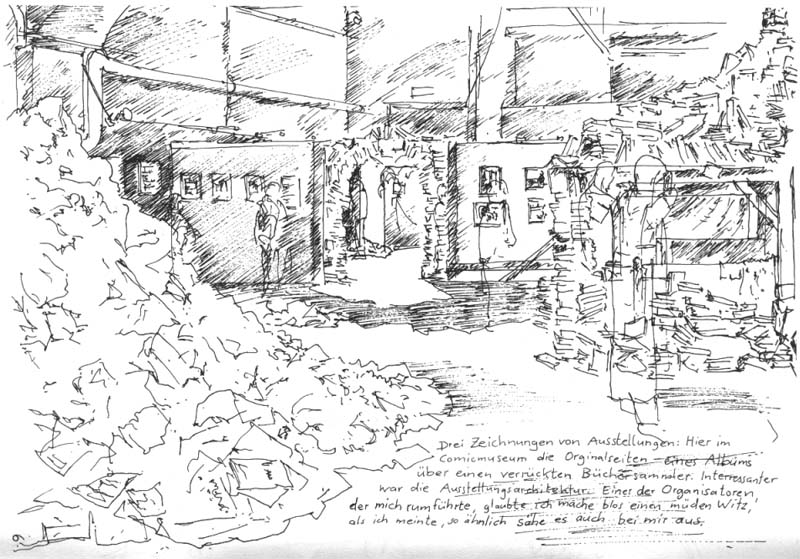 Drei Zeichnungen von Ausstellungen: Hier im
Comicmuseum die Orginalseiten eines Albums
über einen verrückten Büchersammler. Interessanter
war die Ausstellungsarchitektur. Eines der Organisatoren
der mich rumführte, glaubte ich mache blos einen müden Witz,
als ich meinte, so ähnlich sähe es auch bei mir aus.